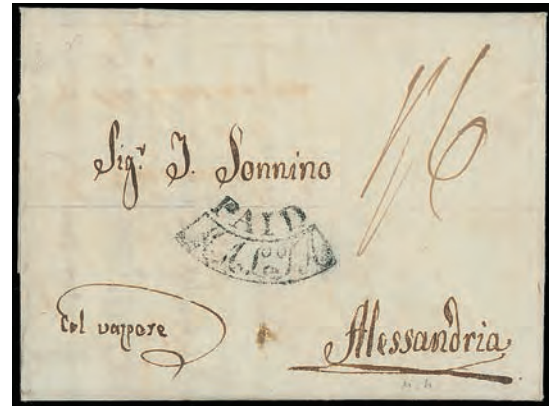 1/6
Sig.r J. Sonnino
PAID
Col vapore
Alessandria